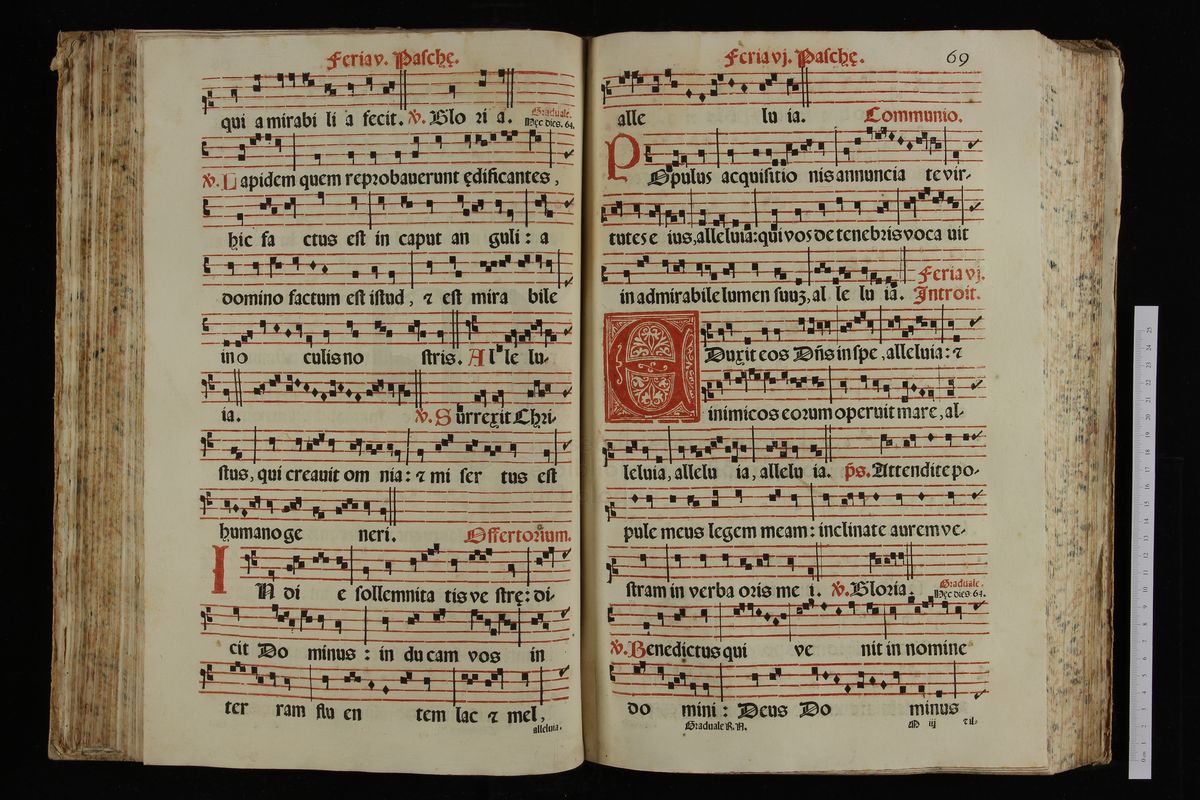 Feria v. Paschę.
qui a mirabi li a fecit. ℣. Glo ri a. Graduale.
Hęc dies. 64.
℣. Lapidem quem reprobauerunt ędificantes,
hic fa ctus est in caput an guli: a
domino factum est istud, ⁊ est mira bile
in o culis no stris. Al le lu
ia. ℣. Surrexit Chri-
stus, qui creauit om nia: ⁊ mi ser tus est
humano ge neri. Offertorium.
IN di e sollemnita tis ve strę: di-
cit Do minus: in du cam vos in
ter ram flu en tem lac ⁊ mel,
alleluia.
Feria vj. Paschę. 69
alle lu ia. Communio.
POpulus acquisitio nis annuncia te vir-
tutes e ius, alleluia: qui vos de tenebris voca uit
in admirabile lumen suuȝ, al le lu ia. Feria vj.
Introit.
EDuxit eos Dñs in spe, alleluia: ⁊
inimicos eorum operuit mare, al-
leluia, allelu ia, allelu ia. p̄s. Attendite po-
pule meus legem meam: inclinate aurem ve-
stram in verba oris me i. ℣. Gloria. Graduale.
Hęc dies 64.
℣. Benedictus qui ve nit in nomine
do mini: Deus Do minus
Graduale R. A. iij ⁊ il-